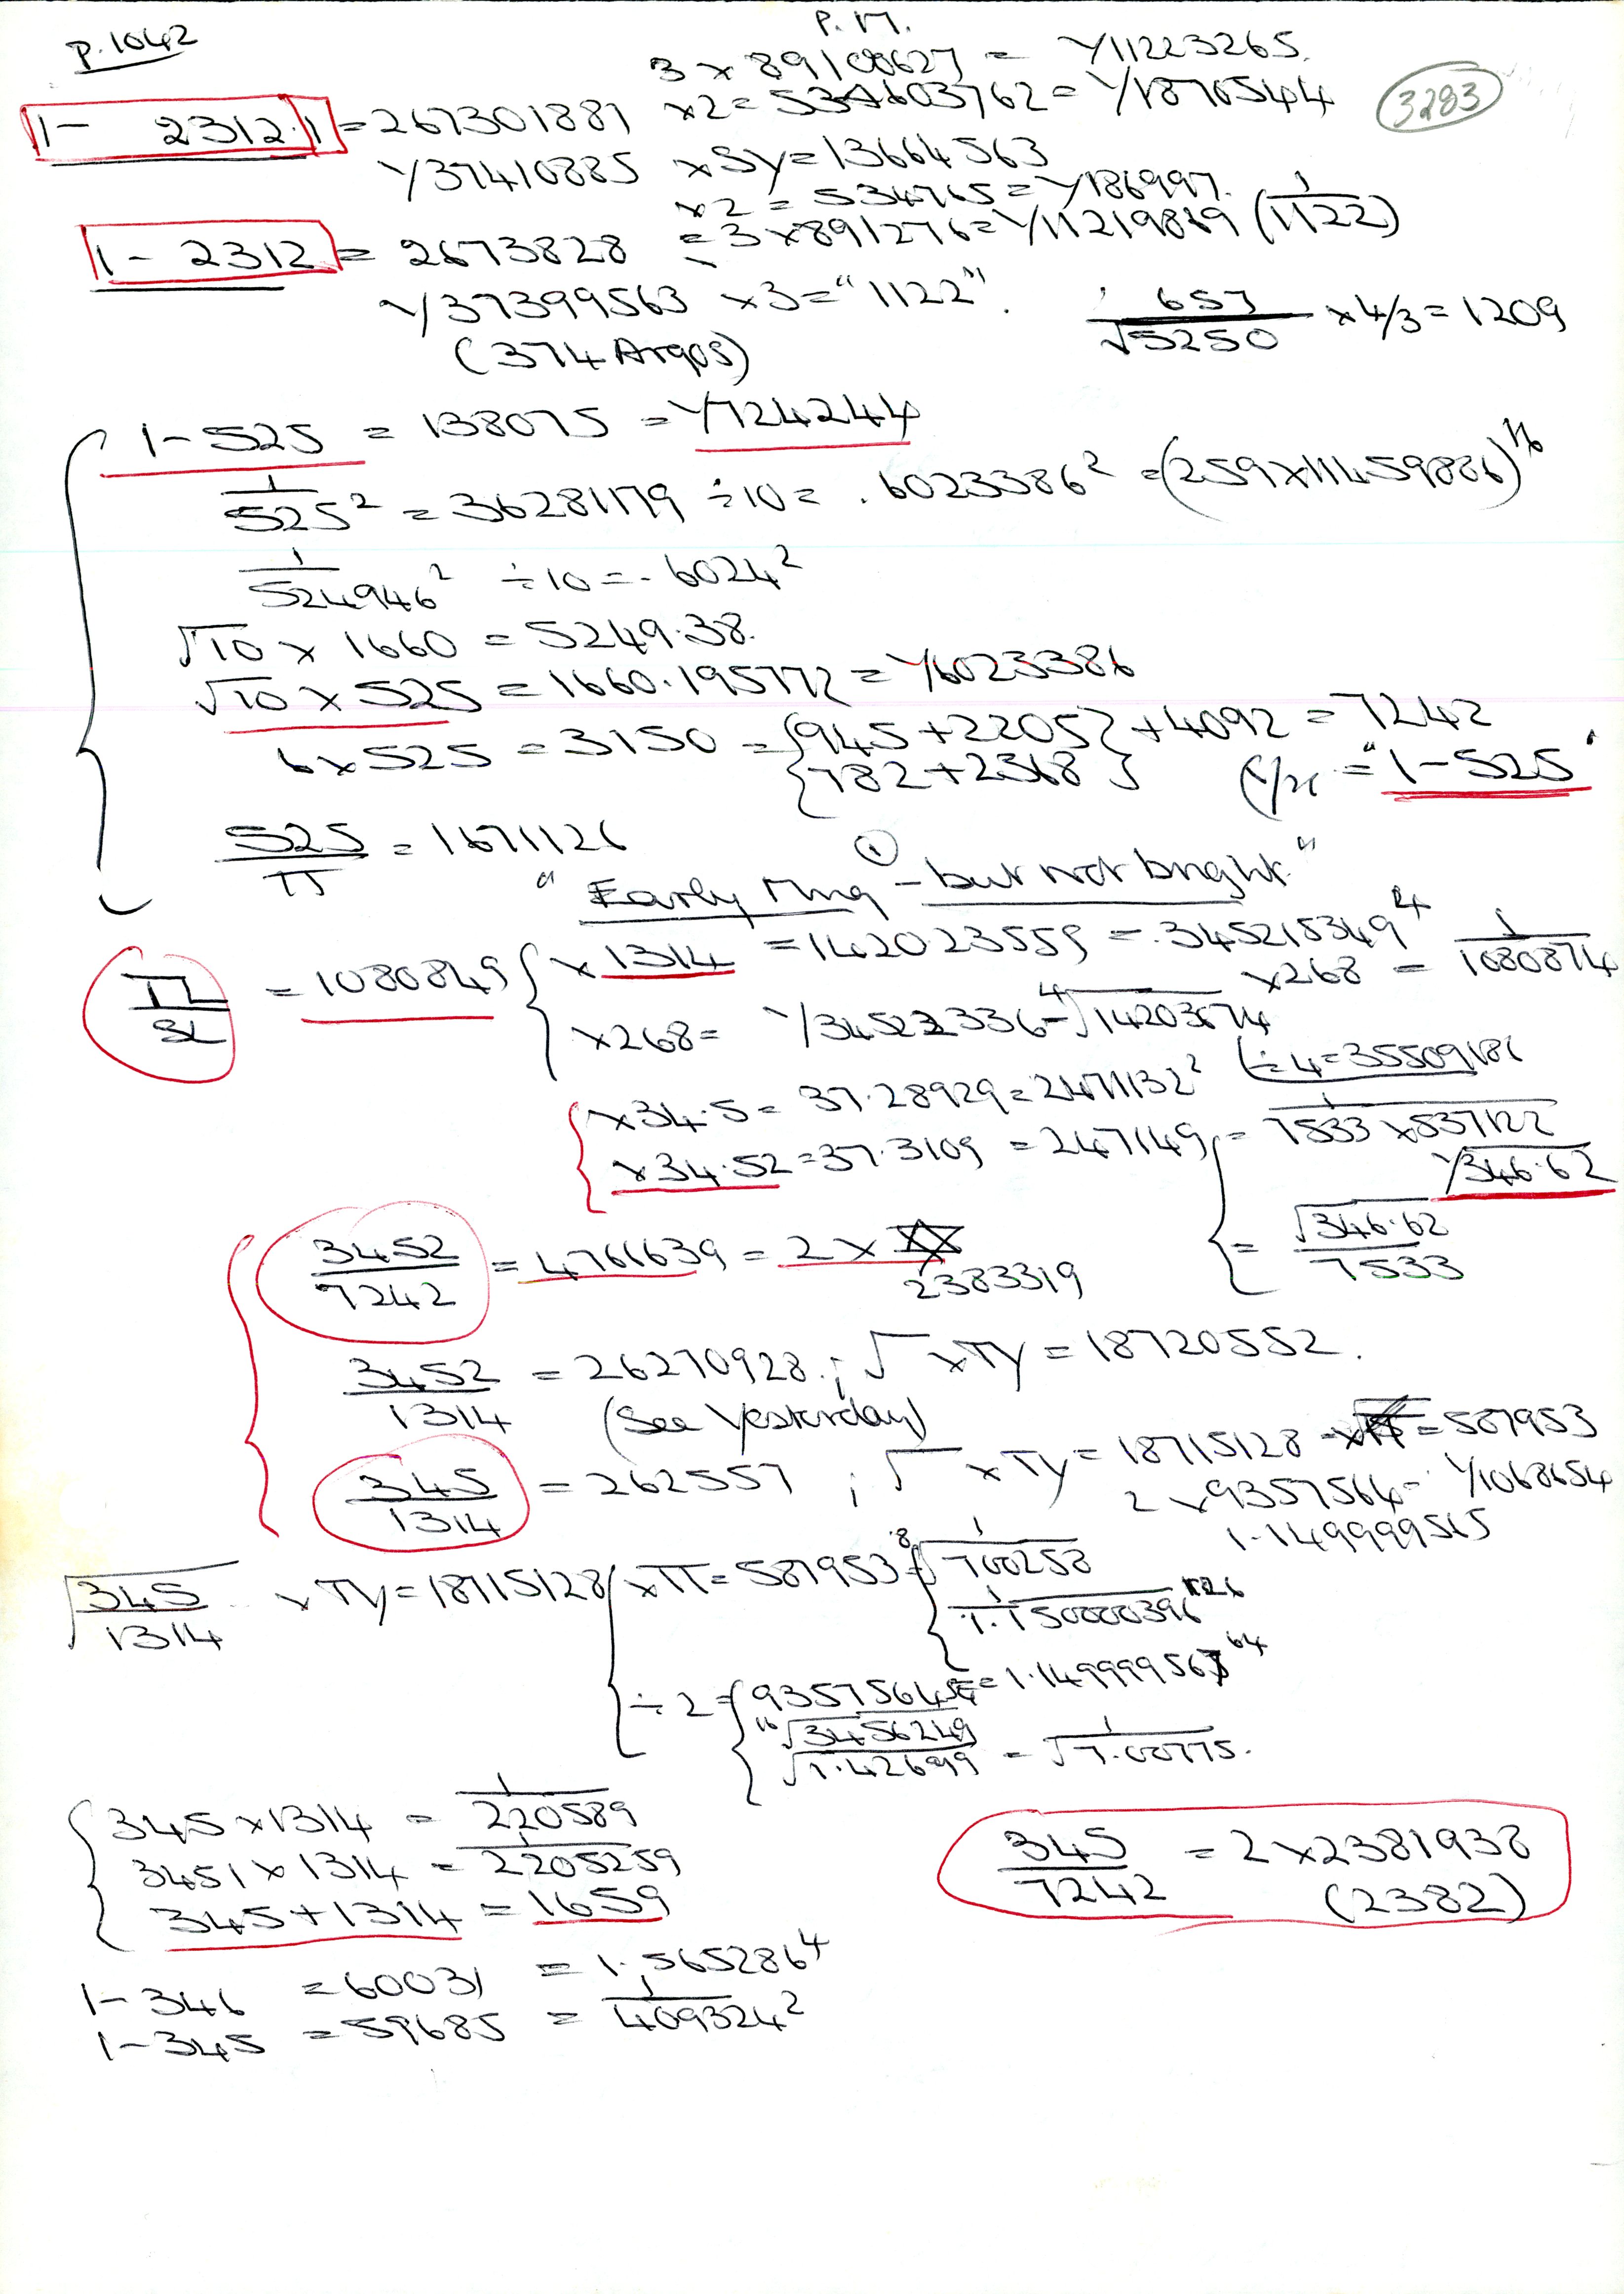 P. 1042
P. 17.
3 × 89100627 = Y11223265.
3283
1 - 2312.1 = 267301881 ×2 = 534603762 = Y18705544
Y37410885 ×SY = 13664563
×2 = 534765 = Y186997.
1 - 2312 = 2673828 = 3 × 891276 = Y11219869 (1/1122)
Y37399563 ×3 = "1122".
(374 Argos)
657/√5250 × 4/3 = 1209
1 - 525 = 138075 = Y724244
1/525² = 36281179 ÷10 = .6023386² = (259×11459886)^1/16
1/524946² ÷10 = .6024²
√10 × 1660 = 5249.38.
√10 × 525 = 1660.195772 = Y6023386
6 × 525 = 3150 = {945 + 2205} + 4092 = 7242
{782 + 2368} (1/x = "1 - 525"
525/π = 1671126
"Early Ring ① - but not bright."
TL/SL = 1080849 { × 1314 = 142023559 = .345218349⁴
×268 = 1/1080874
×268 = Y34522336 = ⁴√14203674
(÷4 = 35509186
×34.5 = 37.28929 = 2471132²
×34.52 = 37.3109 = 247149 { = 1/7533 × 537122
Y√346.62
= √346.62/7533
3452/7242 = 4766639 = 2 × 2383319
3452/1314 = 26270928 ; √ ×TY = 18720552.
(See Yesterday)
345/1314 = 262557 ; √ ×TY = 18715128 = 587953
2 × 9357564 = Y1068654
1.149999565
√345/1314 ×TY = 18715128 { ×π = 587953 = { ⁸√1/700258
1/1.150000396^126
÷2 = { 93575645 = 1.149999567^64
¹⁶√3456249
√1.42699 = √1/7.00775.
345 × 1314 = 1/220589
3451 × 1314 = 1/2205259
345 + 1314 = 1659
345/7242 = 2 × 2381938
(2382)
1 - 346 = 60031 = 1.565286⁴
1 - 345 = 59685 = 1/409324²